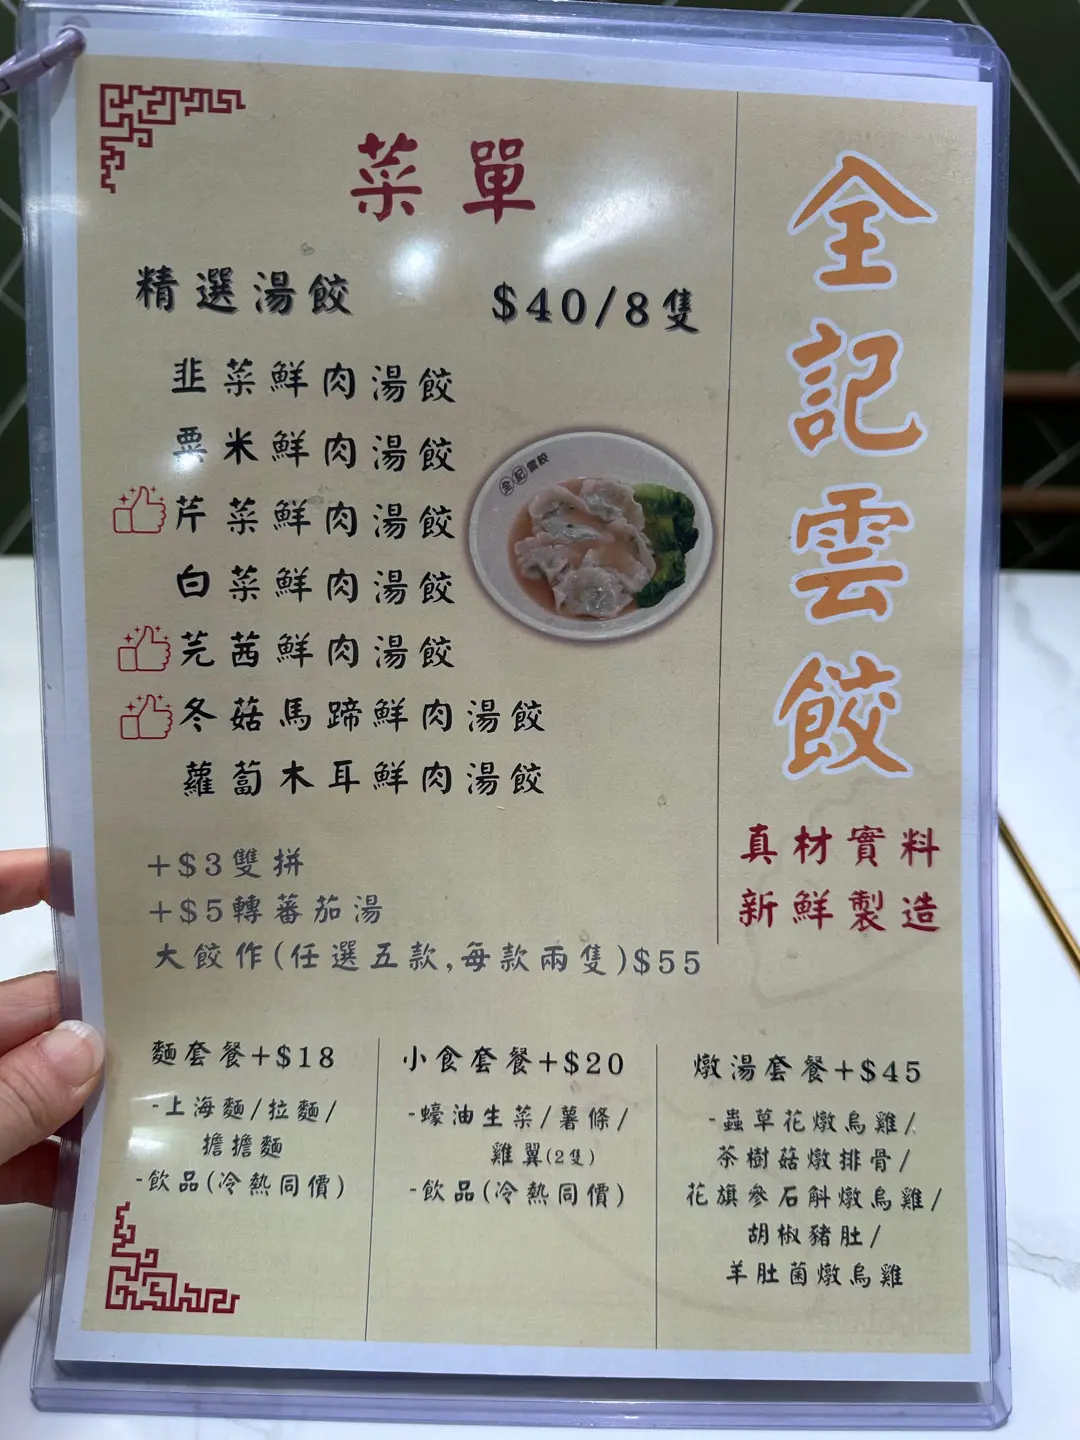 菜單
精選湯餃 $40/8隻
韭菜鮮肉湯餃
粟米鮮肉湯餃
芹菜鮮肉湯餃
白菜鮮肉湯餃
芫茜鮮肉湯餃
冬菇馬蹄鮮肉湯餃
蘿蔔木耳鮮肉湯餃
全記雲餃
+$3雙拼
+$5轉蕃茄湯
大餃作(任選五款,每款兩隻)$55
全記雲餃
真材實料
新鮮製造
麵套餐+$18
-上海麵/拉麵/
擔擔麵
-飲品(冷熱同價)
小食套餐+$20
-蠔油生菜/薯條/
雞翼(2隻)
-飲品(冷熱同價)
燉湯套餐+$45
-蟲草花燉烏雞/
茶樹菇燉排骨/
花旗參石斛燉烏雞/
胡椒豬肚/
羊肚菌燉烏雞